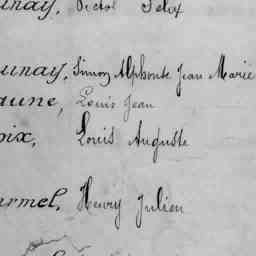 unay, Victor Félix
unay, Simon Alphonse Jean Marie
aune, Louis Jean
oix, Louis Auguste
armel, Henry Julien